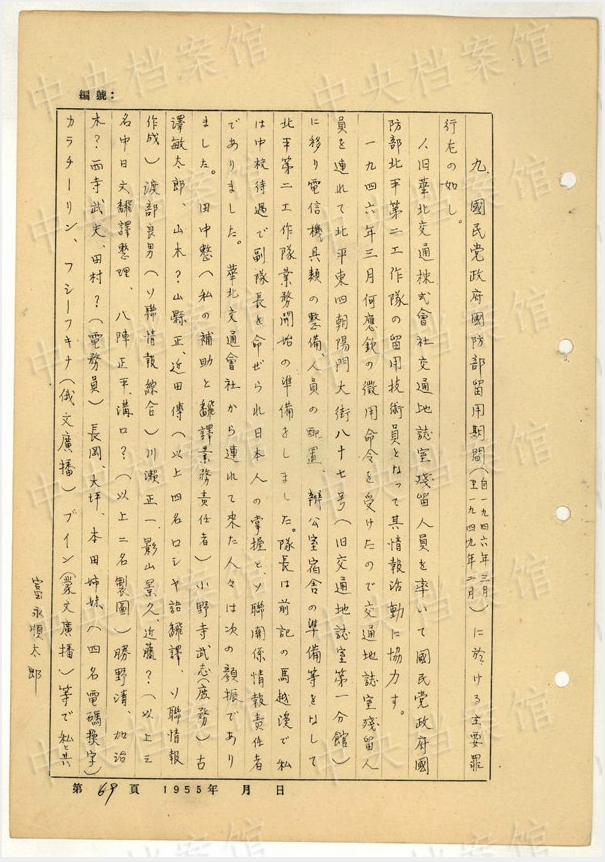 編號：
九、國民党政府國防部留用期間（自一九四六年三月至一九四九年二月）に於ける主要罪
行左の如し。
八、旧華北交通株式會社交通地誌室残留人員を率いて國民党政府國
防部北平第二工作隊の留用技術員となって其情報活動に協力す。
一九四六年三月何應欽の徴用命令を受けたので交通地誌室残留人
員を連れて北平東四朝陽門大街八十七号（旧交通地誌室第一分館）
に移り電信機具類の整備、人員の配置、辦公室宿舎の準備等をなして
北平第二工作隊業務開始の準備をしました。隊長は前記の馬越漢で私
は中校待遇で副隊長を命ぜられ日本人の掌握とソ聯関係情報責任者
でありました。華北交通會社から連れて来た人々は次の顔振であり
ました。田中整（私の補助と翻譯業務責任者）小野寺武志（庶務）古
澤敏太郎、山木？山縣正、近田傳（以上四名ロシヤ語翻譯、ソ聯情報
作成）渡部良男（ソ聯情報綜合）川瀬正一、影山景久、近藤？（以上三
名中日文翻譯整理、八陣正平、溝口？（以上二名製圖）勝野清、加治
木？西寺武夫、田村？（電務員）長岡、大坪、本田姉妹（四名電碼換字）
カラチーリン、フシーフキナ（俄文廣播）ブイン（蒙文廣播）等で私と共
富永順太郎
第 69 頁 1955年 月 日
中央档案馆